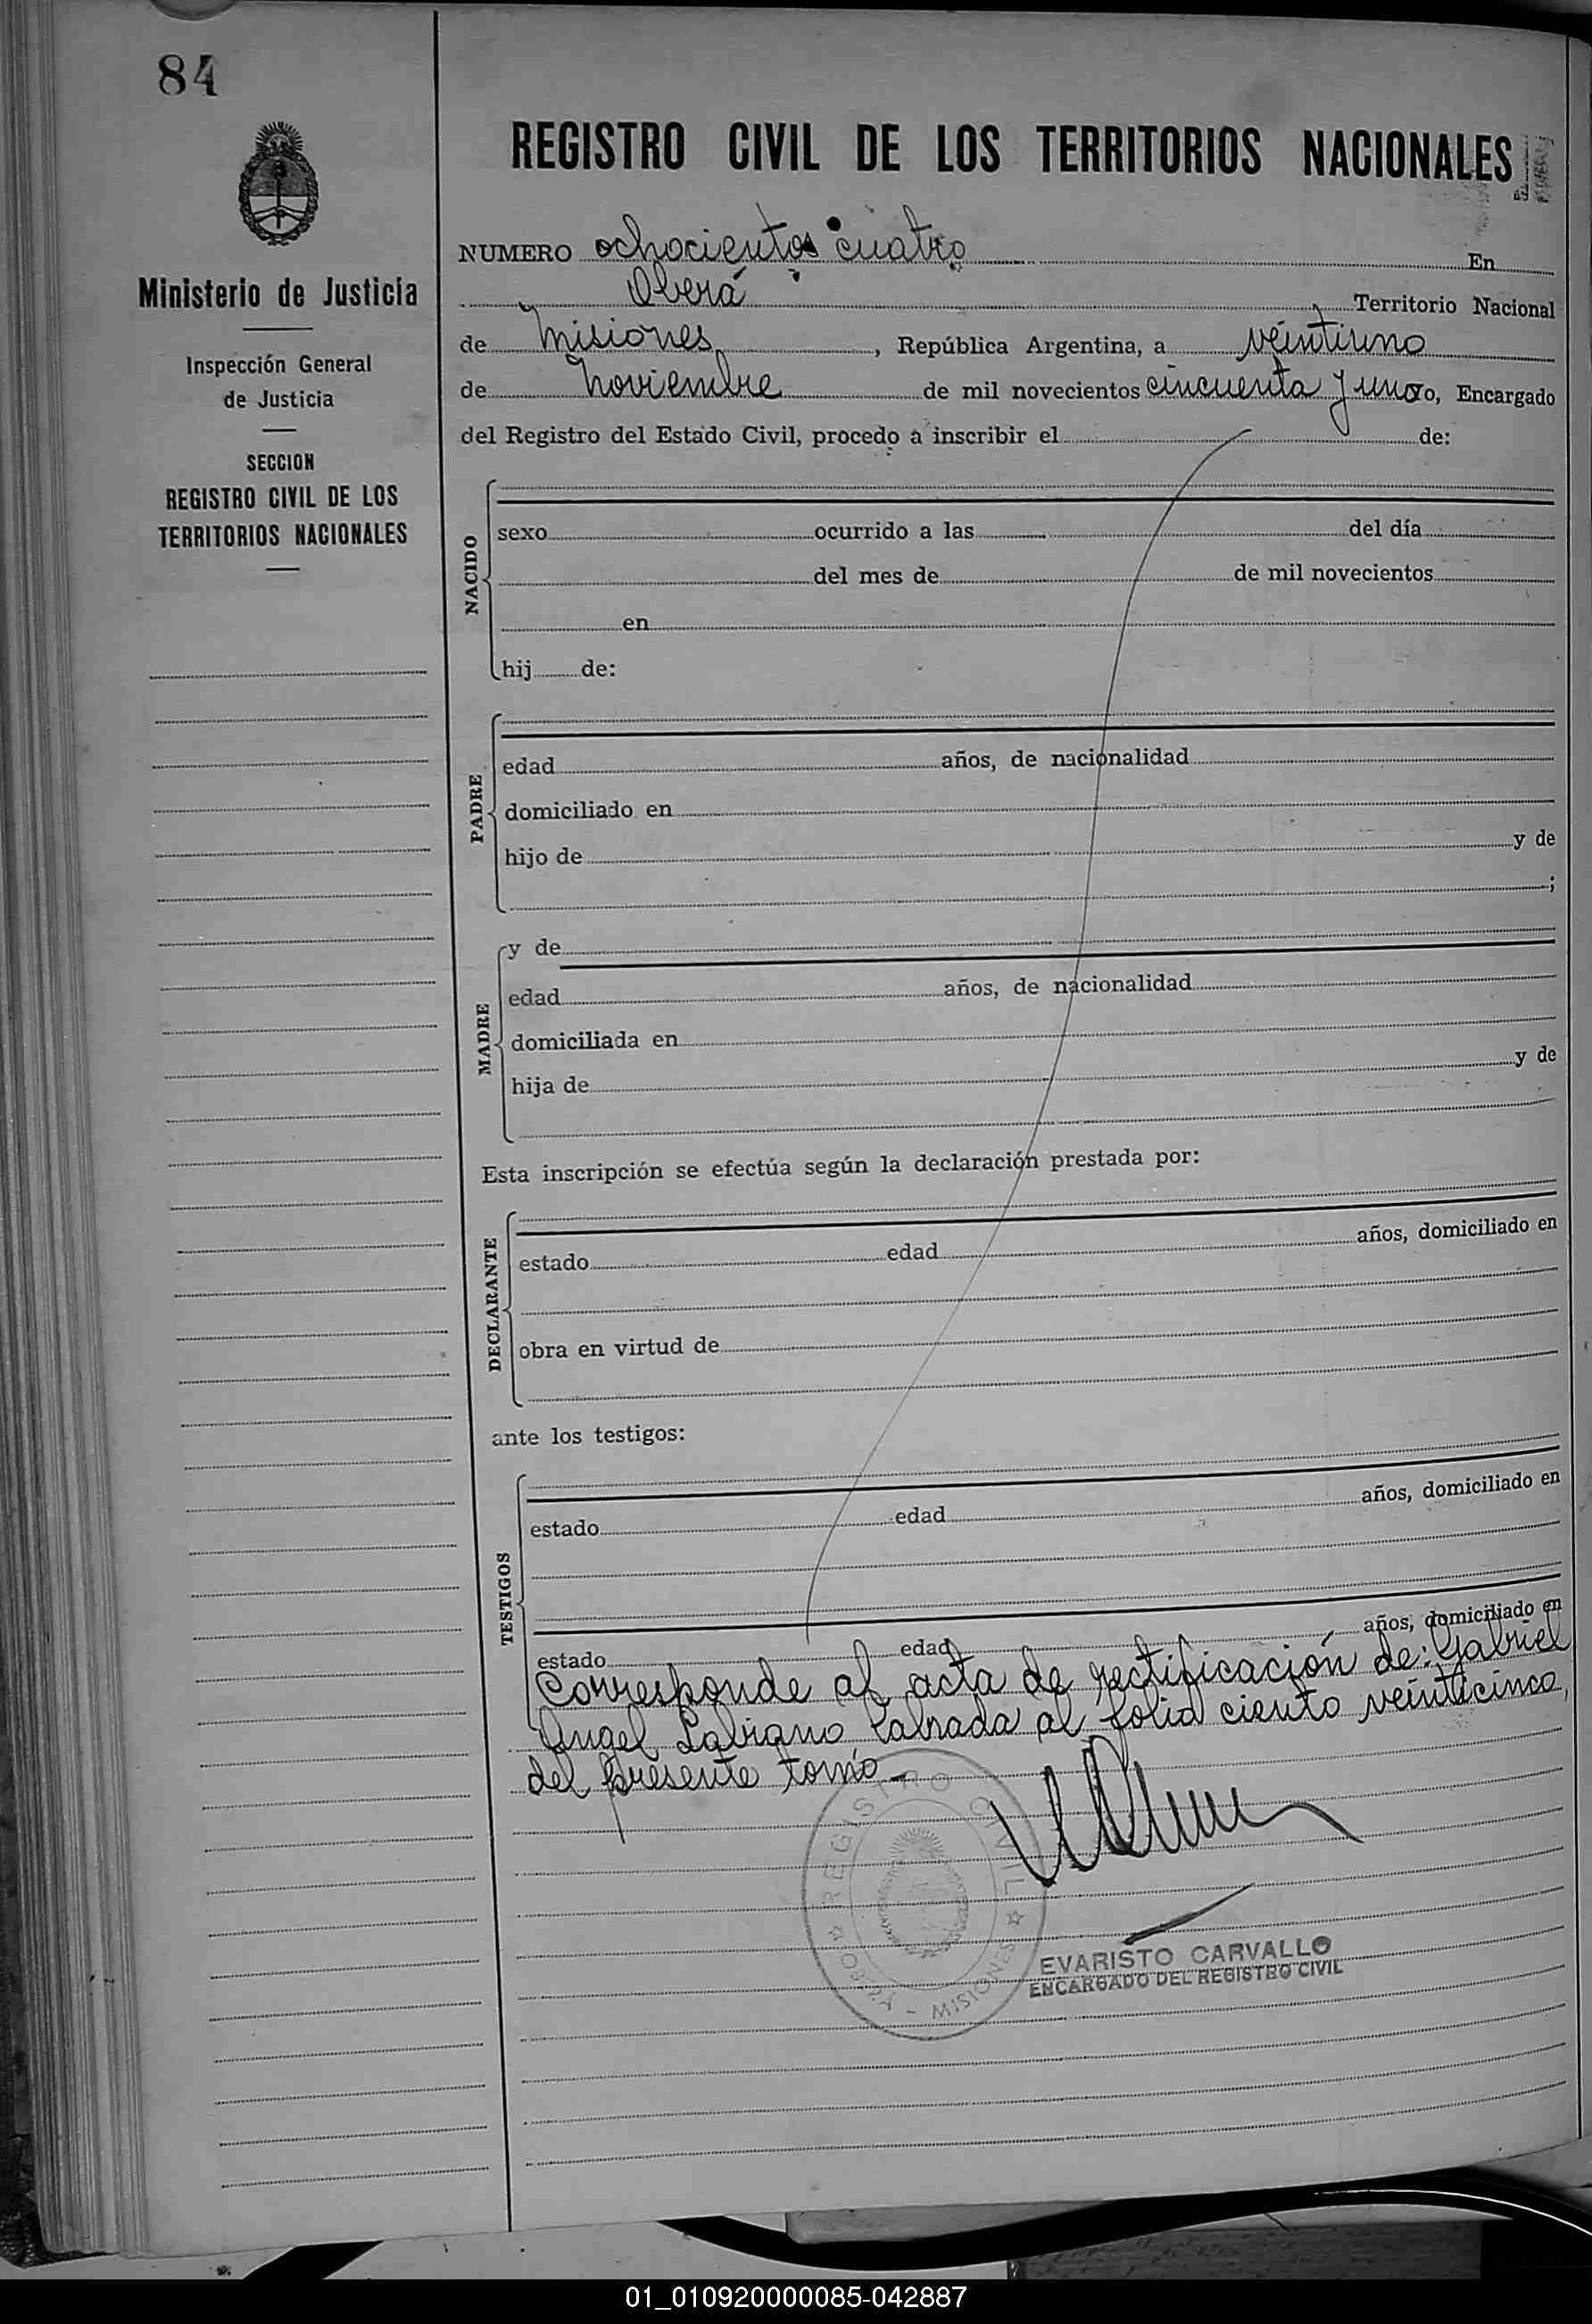 84
REGISTRO CIVIL DE LOS TERRITORIOS NACIONALES
Ministerio de Justicia
Inspección General
de Justicia
SECCION
REGISTRO CIVIL DE LOS
TERRITORIOS NACIONALES
NUMERO ochocientos cuatro En
Oberá Territorio Nacional
de Misiones, República Argentina, a veintiuno
de Noviembre de mil novecientos cincuenta y uno yo, Encargado
del Registro del Estado Civil, procedo a inscribir el de:
NACIDO
sexo ocurrido a las del día
del mes de de mil novecientos
en
hij de:
PADRE
edad años, de nacionalidad
domiciliado en
hijo de y de
;
MADRE
y de
edad años, de nacionalidad
domiciliada en
hija de y de
Esta inscripción se efectúa según la declaración prestada por:
DECLARANTE
estado edad años, domiciliado en
obra en virtud de
ante los testigos:
TESTIGOS
estado edad años, domiciliado en
estado edad años, domiciliado en
Corresponde al acta de rectificación de: Gabriel
Angel Labiano labrada al folio ciento veinticinco,
del presente tomo.-
REGISTRO CIVIL
MISIONES
EVARISTO CARVALLO
ENCARGADO DEL REGISTRO CIVIL
01_010920000085-042887